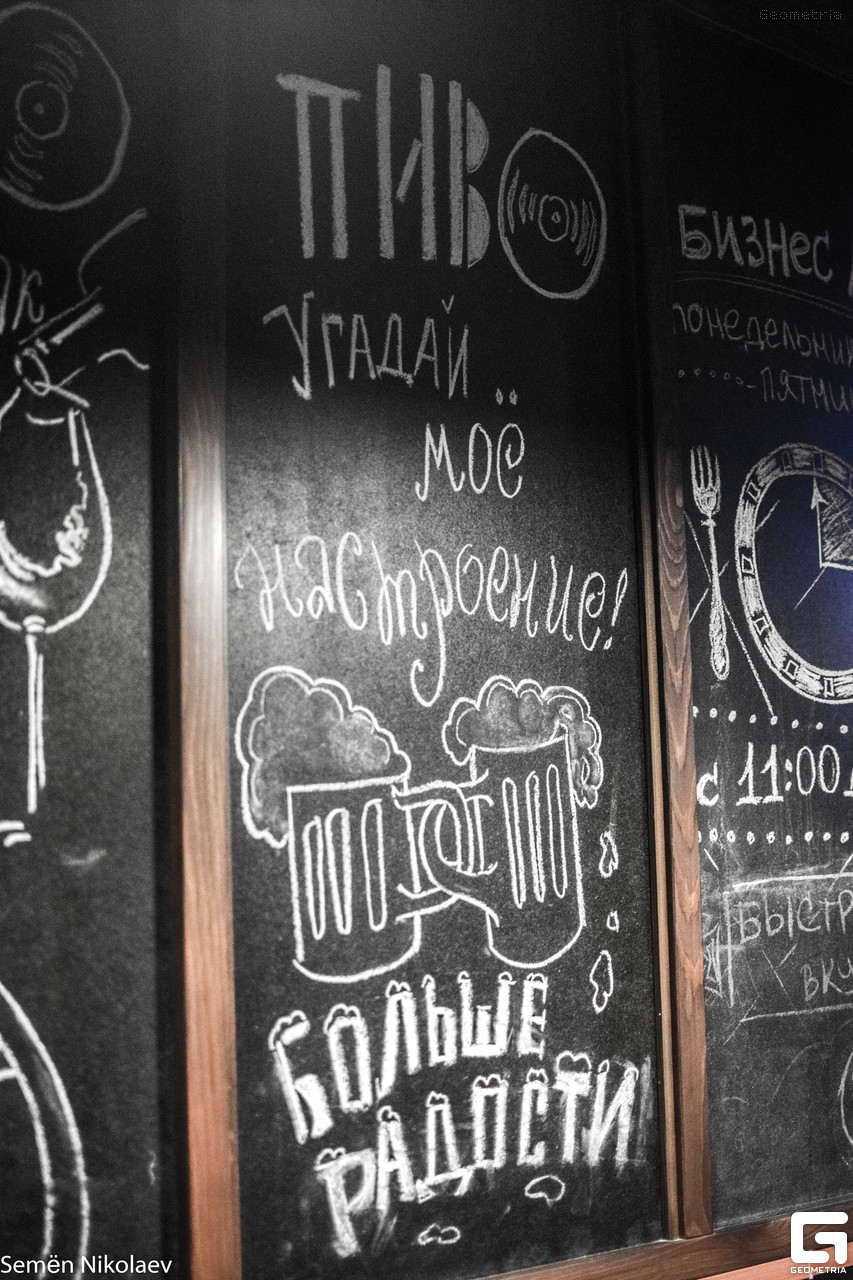 Geometria
ПИВО
Угадай
моё
настроение!
БОЛЬШЕ
РАДОСТИ
БИЗНЕС
понедельник
пятни
с 11:00
БЫСТР
ВКУ
Semёn Nikolaev
GEOMETRIA